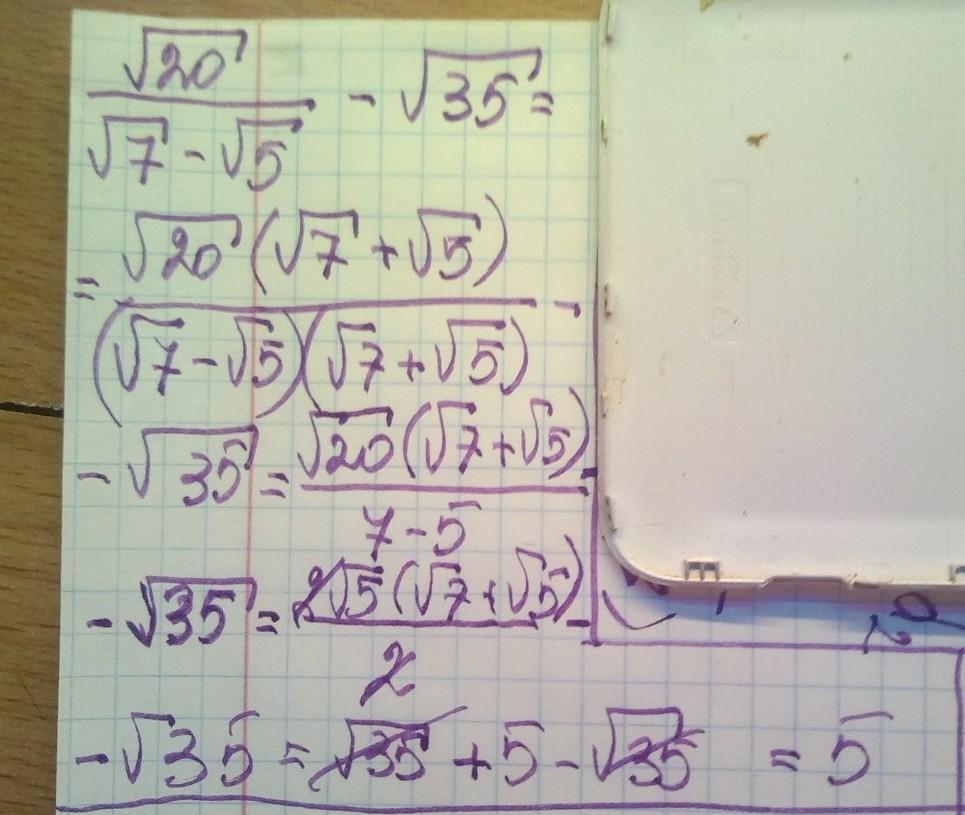 √20 / (√7 - √5) - √35 =
= √20 (√7 + √5) / (√7 - √5)(√7 + √5) -
- √35 = √20 (√7 + √5) / 7 - 5 -
- √35 = 2√5 (√7 + √5) / 2 -
- √35 = √35 + 5 - √35 = 5